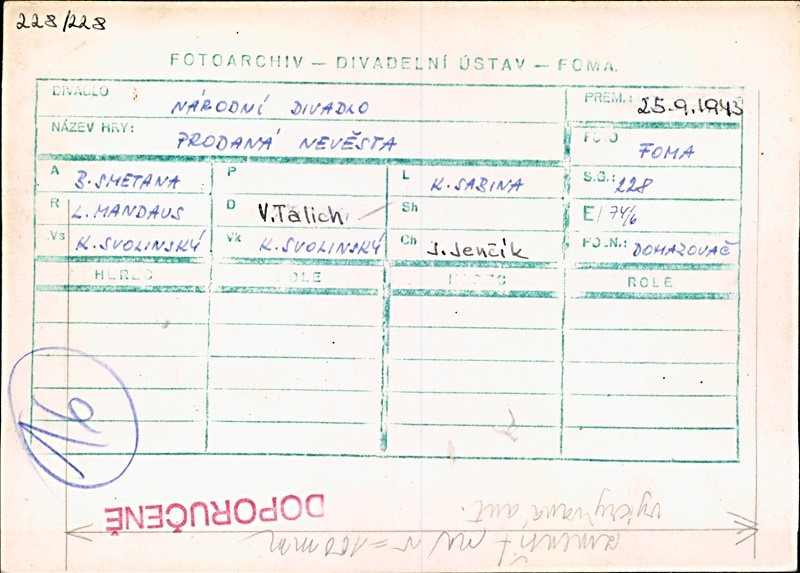 228/228
FOTOARCHIV — DIVADELNÍ ÚSTAV — FOMA
DIVADLO NÁRODNÍ DIVADLO PREM.: 25.9.1943
NÁZEV HRY: PRODANÁ NEVĚSTA FOTO FOMA
A B. SMETANA P L K. SABINA S.G.: 228
R L. MANDAUS D V. Talich Sh E/74/6
Vs K. SVOLINSKÝ Vk K. SVOLINSKÝ Ch J. Jenčík POLN.: DOMAZOVAČ
HEREC ROLE HEREC ROLE
16
DOPORUČENĚ
vykrývaná aut.
zmenšit na v = 100 mm